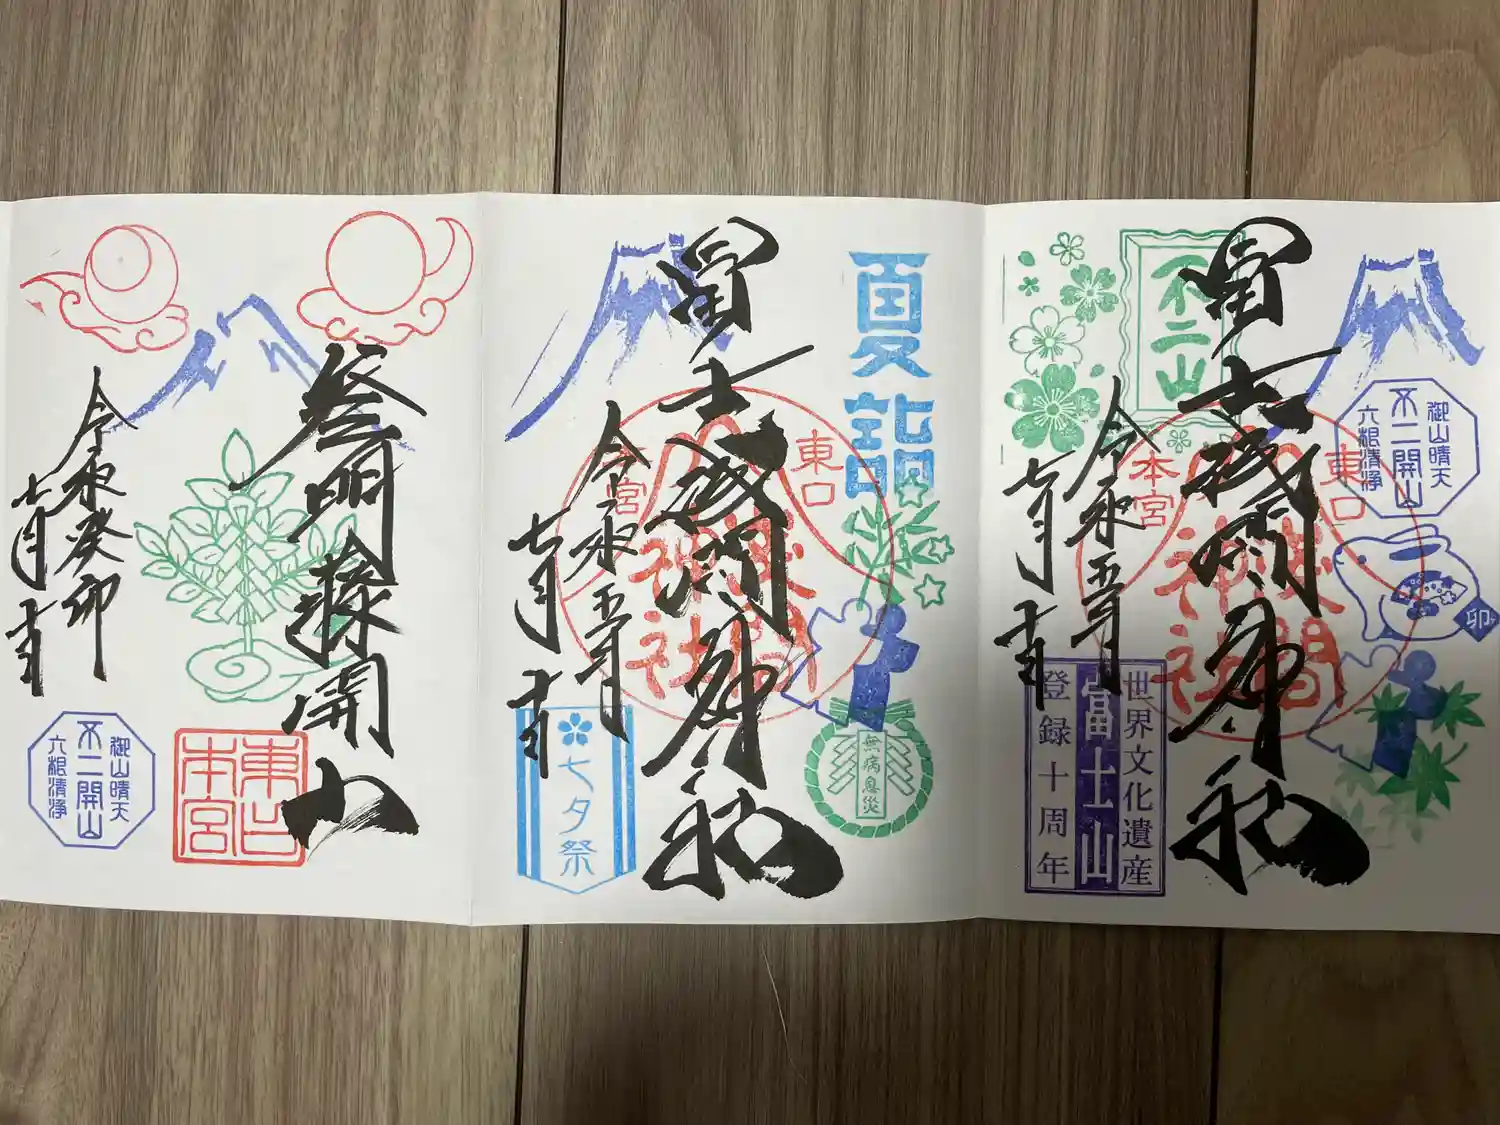 御山晴天
不二開山
六根清浄
卯
不二山
冨士浅間神社
東口
本宮
浅間
神社
令和五年
七月
世界文化遺産
富士山
登録十周年
夏詣
冨士浅間神社
東口
宮
浅間
神社
無病息災
令和五年
七月
七夕祭
開山
東口
本宮
令和癸卯
七月
御山晴天
不二開山
六根清浄